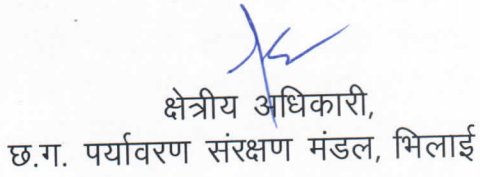 क्षेत्रीय अधिकारी,
छ.ग. पर्यावरण संरक्षण मंडल, भिलाई